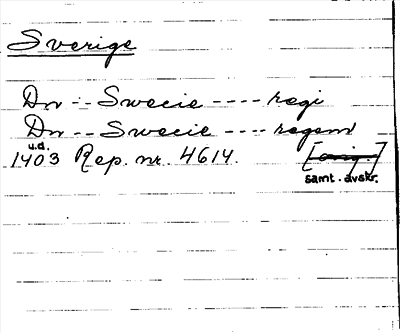 Sverige
Dn -- Swecie ---- regi
Dn -- Swecie ---- regem
u.d.
1403 Rep. nr. 4614. [orig.]
samt. avskr.